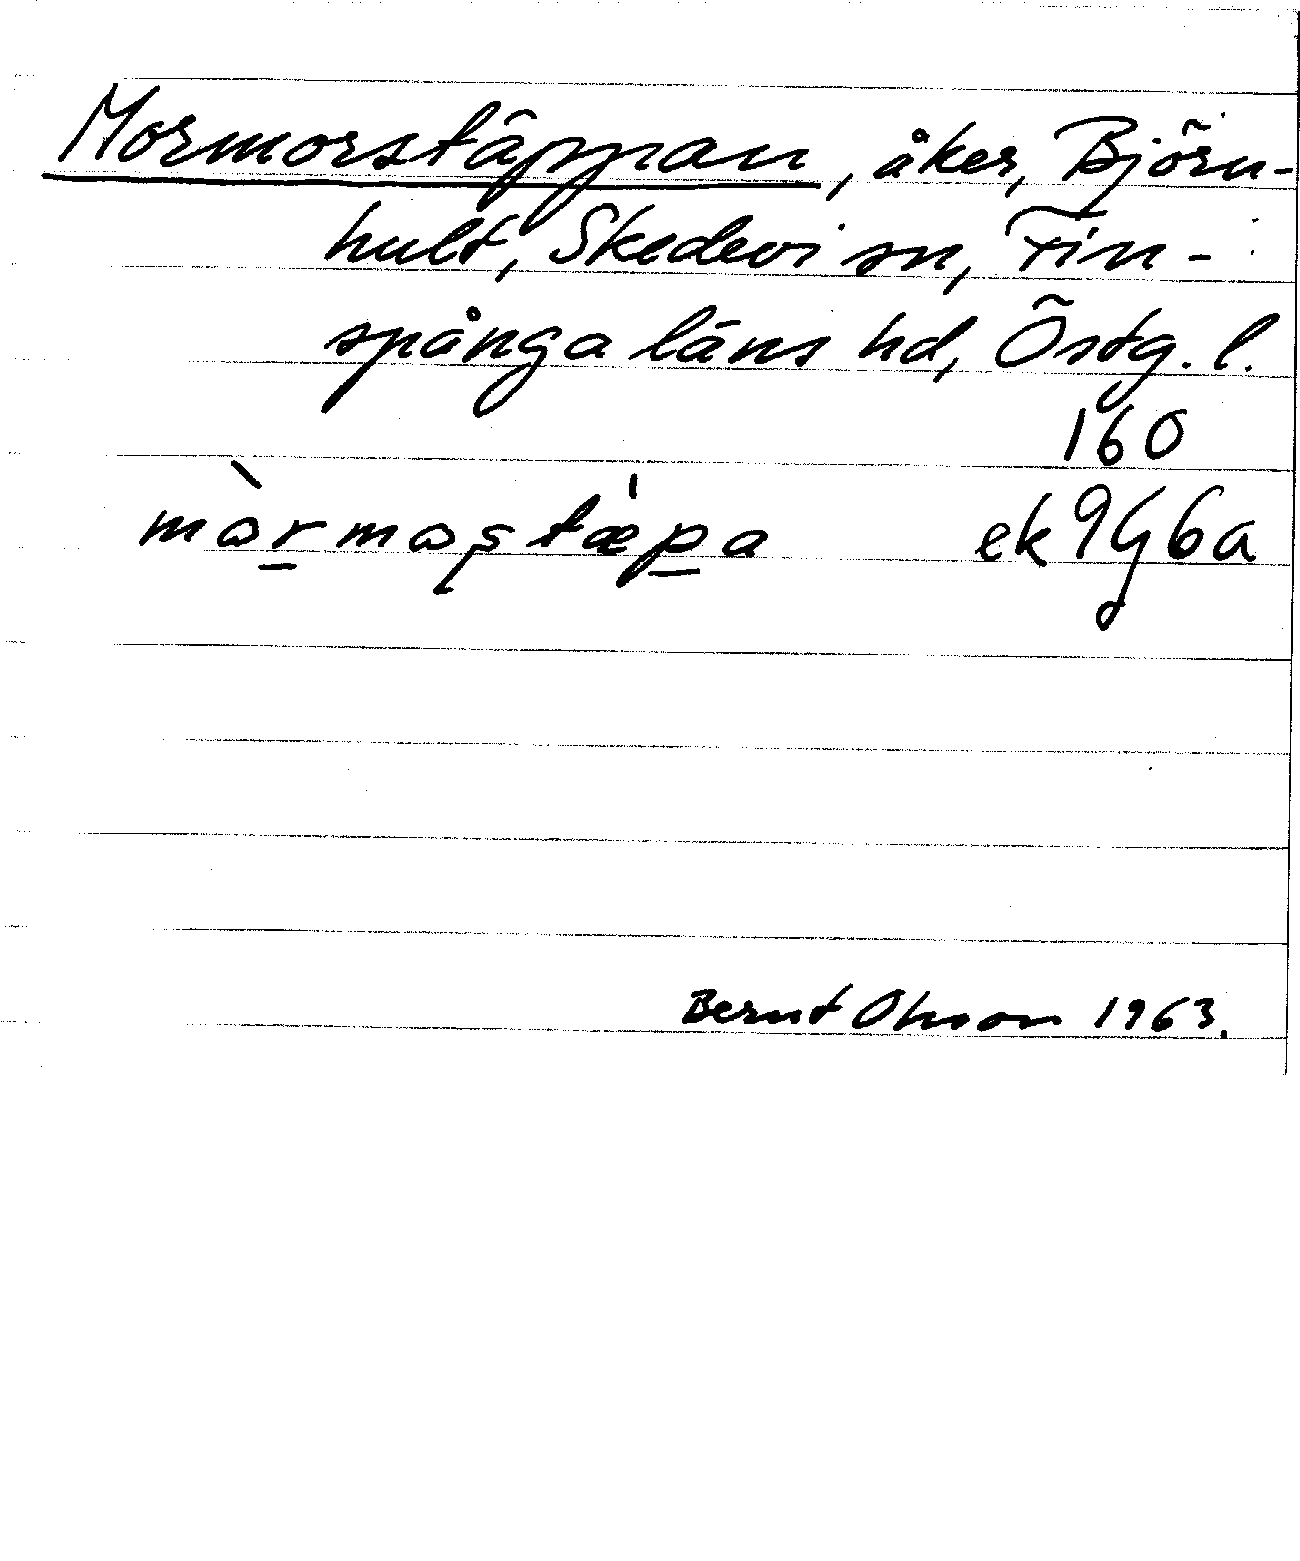 Mormorstäppan, åker, Björn-
hult, Skedevi sn, Fin-
spånga läns hd, Östg. l.
160
mòrmoʂtǽpa ek 9G6a
Bernt Ohlson 1963.